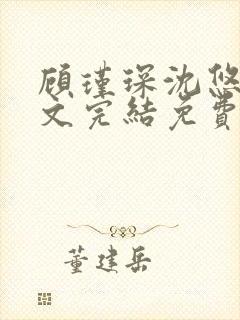 顾瑾琛沈悠
文完結免費
董建岳